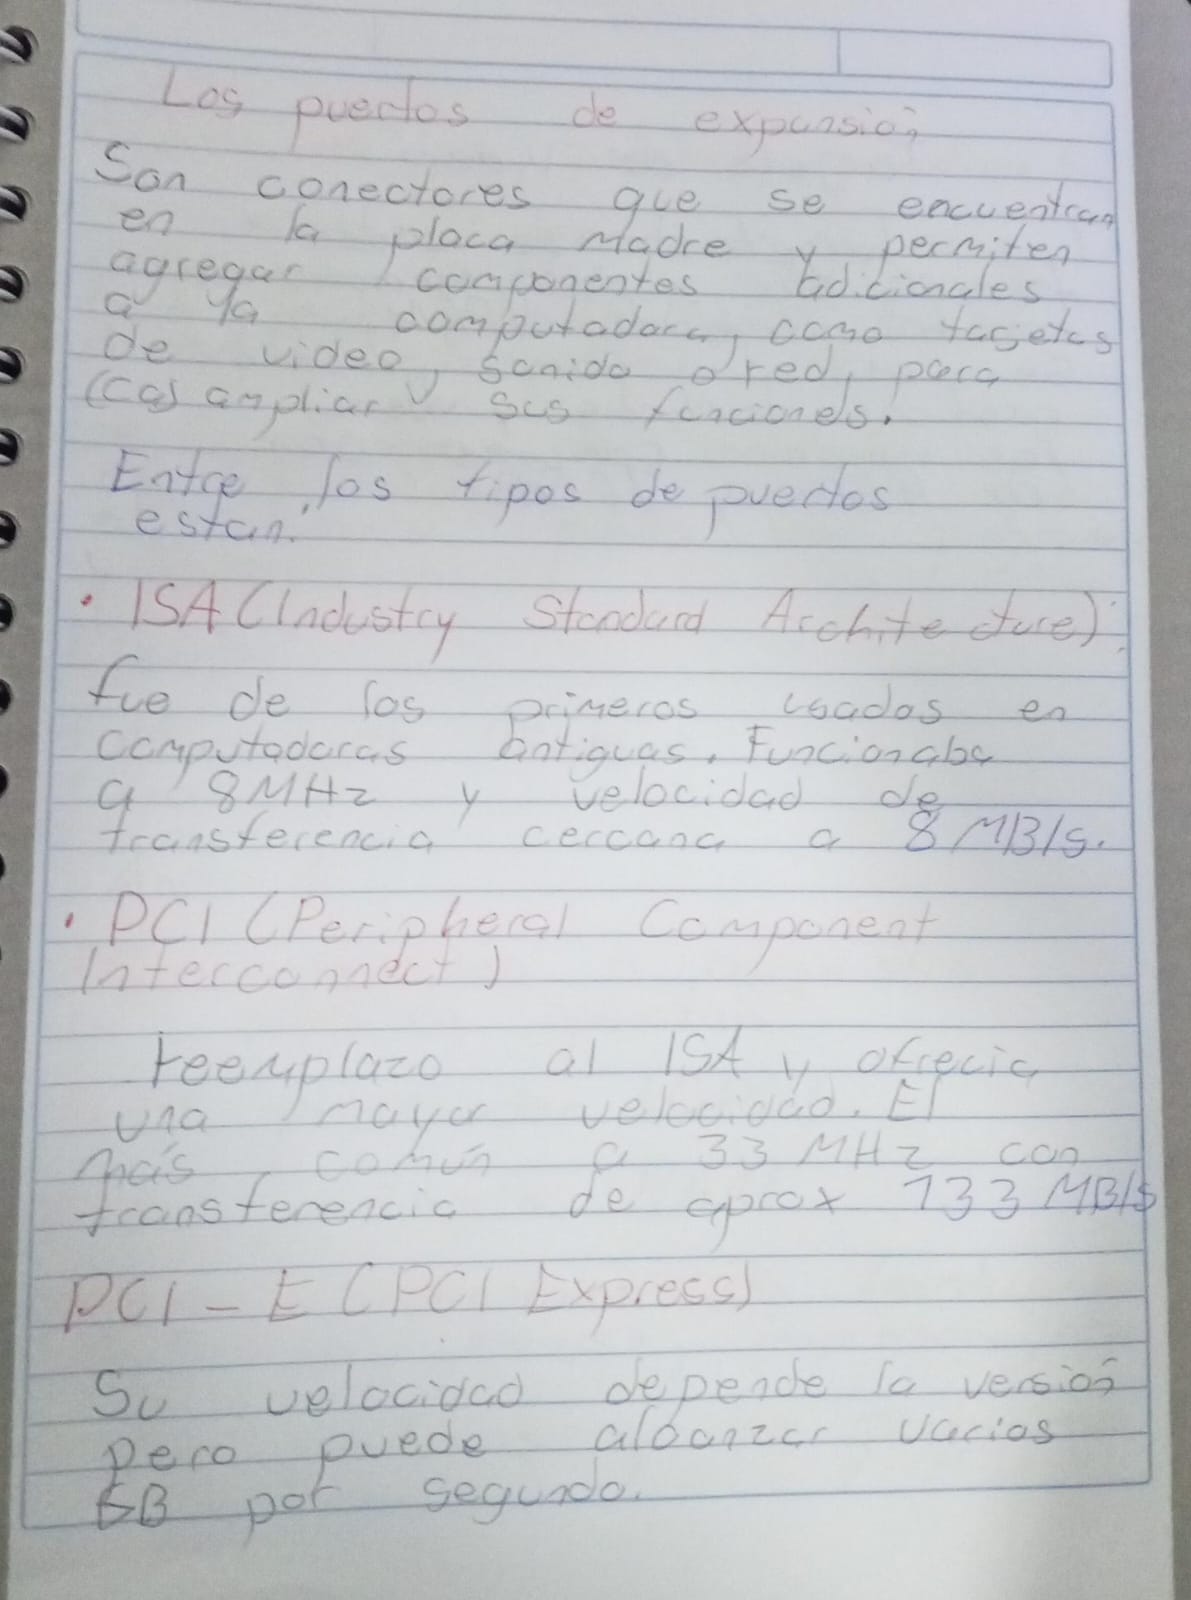 Los puertos de expansión
Son conectores que se encuentran
en la placa Madre y permiten
agregar componentes adicionales
a la computadora, como tarjetas
de video, sonido o red, para
ampliar sus funciones.
Entre los tipos de puertos
estan:
• ISA (Industry Standard Architecture):
fue de los primeros usados en
computadoras antiguas. Funcionaba
a 8MHz y velocidad de
transferencia cercana a 8 MB/s.
• PCI (Peripheral Component
Interconnect)
reemplazo al ISA y ofrecia
una mayor velocidad. El
más común a 33 MHz con
transferencia de aprox 133 MB/s
PCI - E (PCI Express)
Su velocidad depende la versión
pero puede alcanzar varios
GB por segundo.